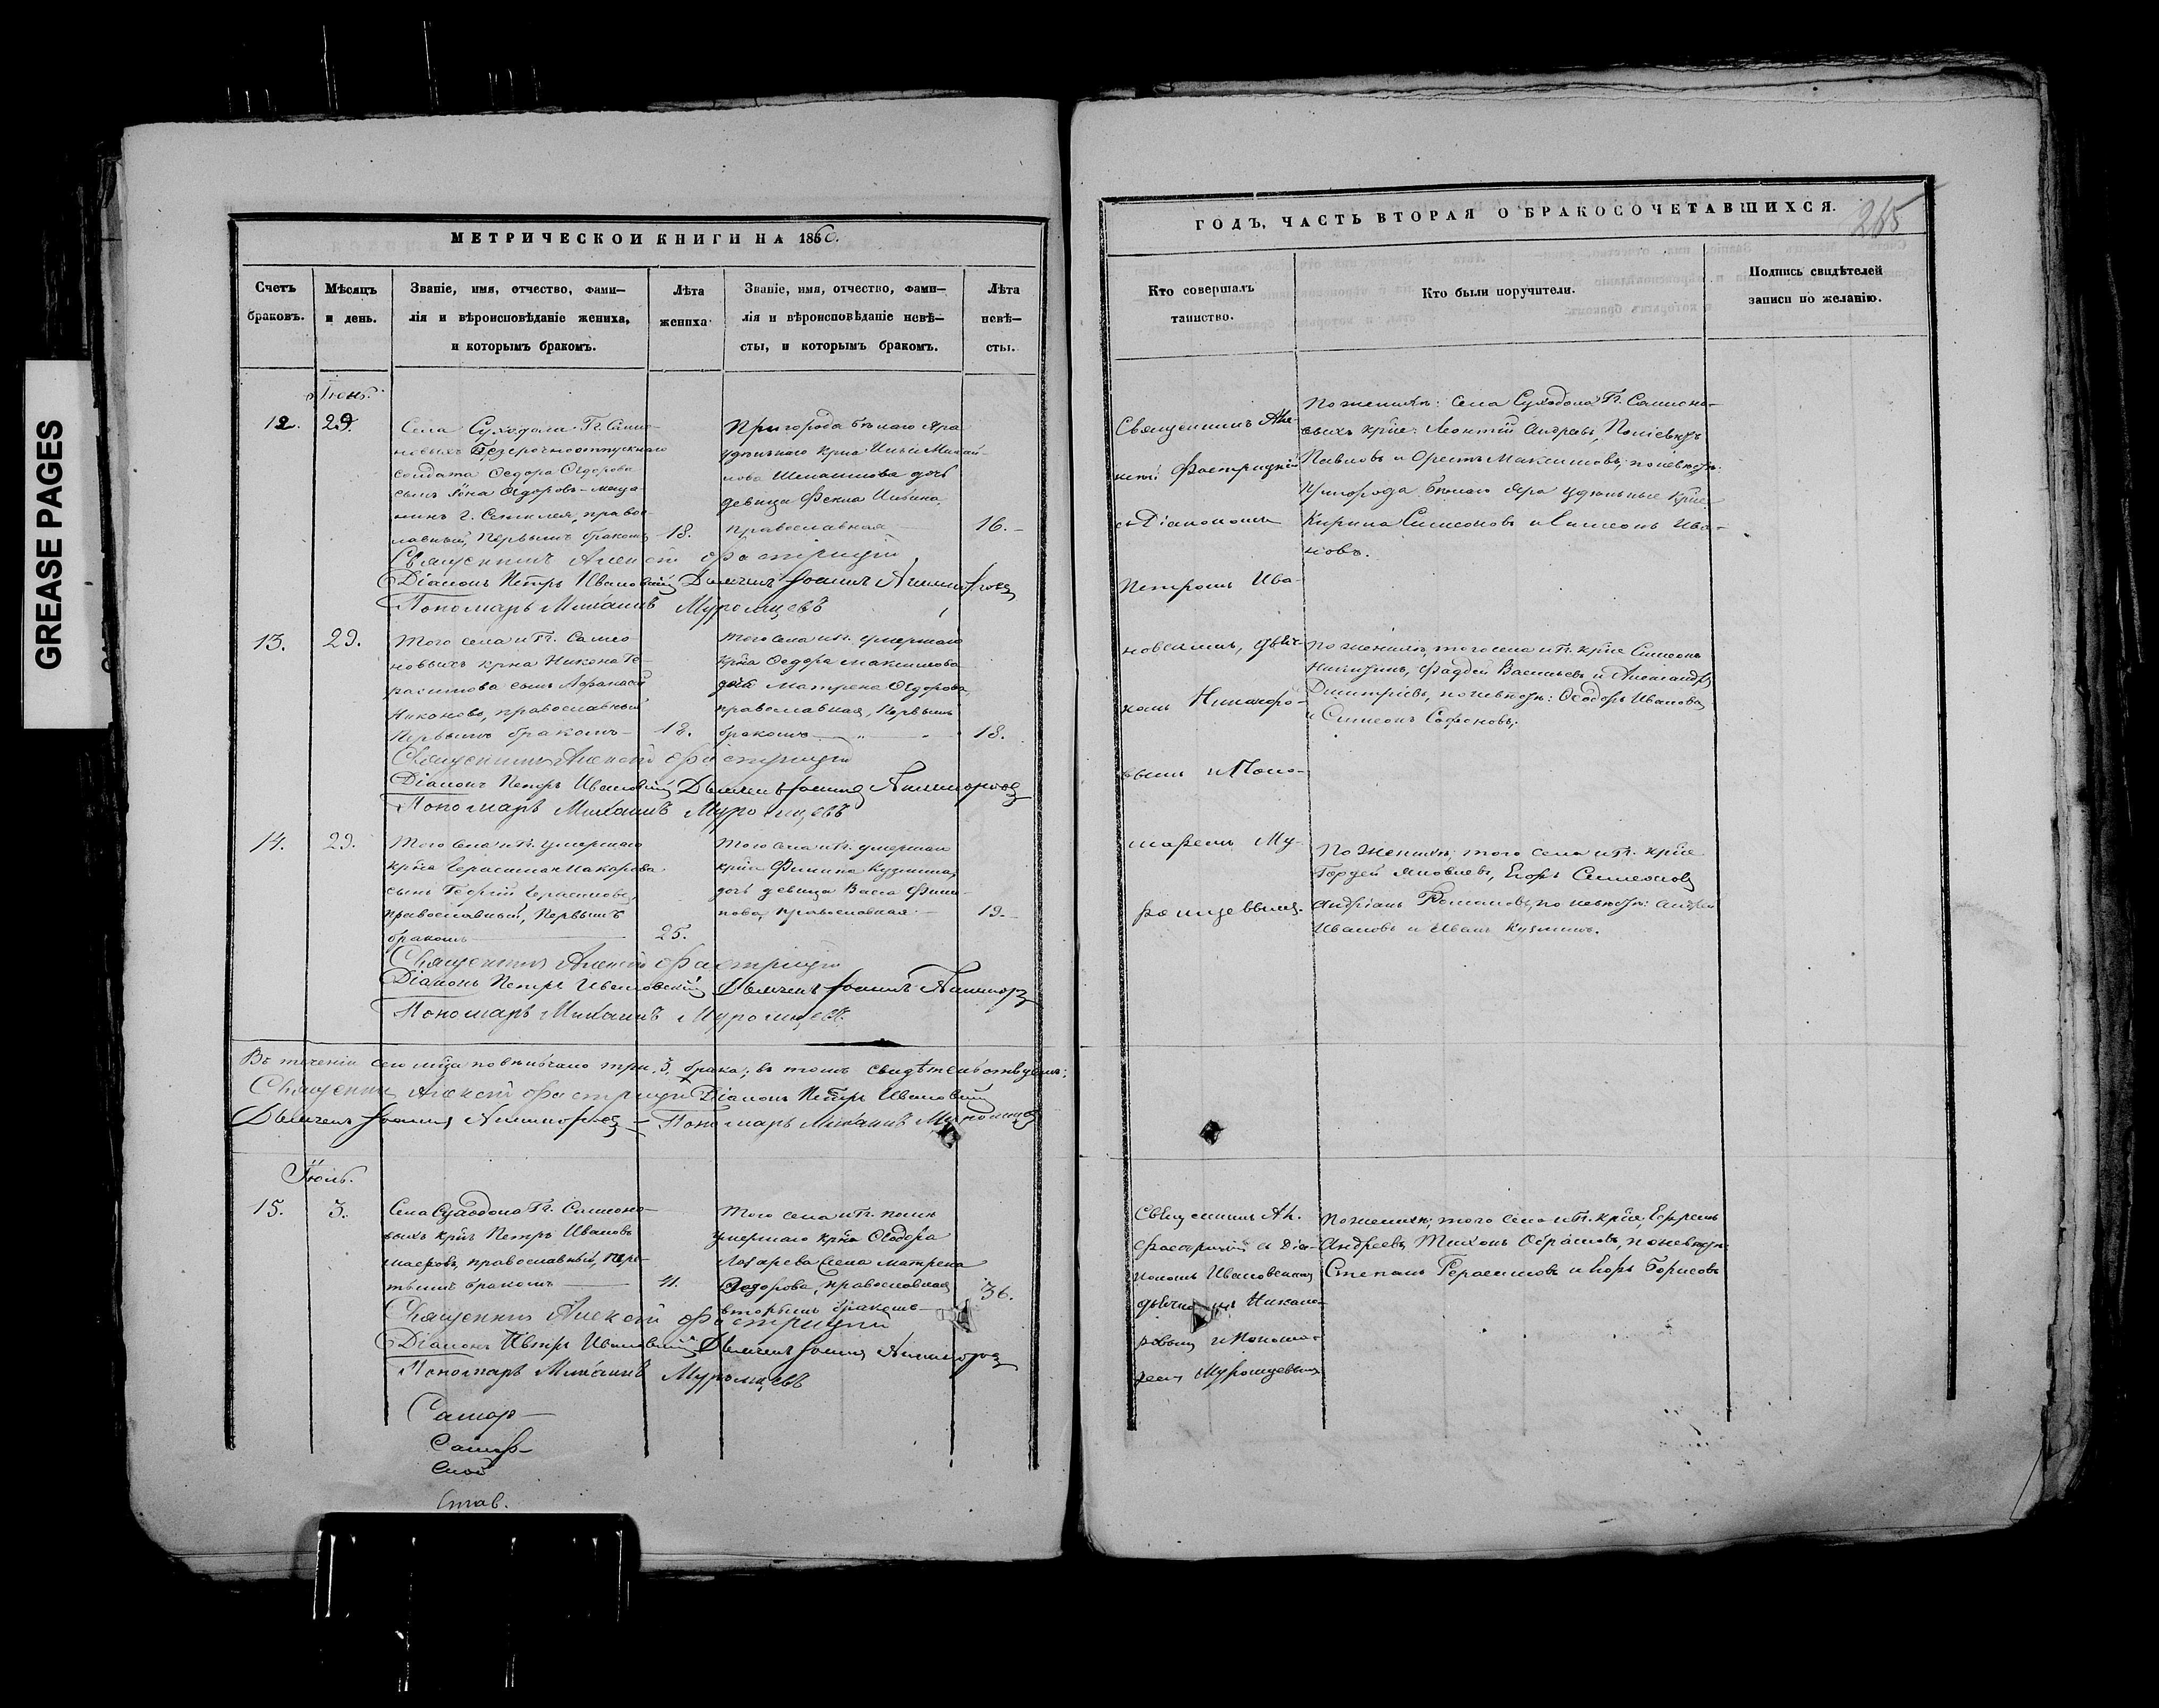 GREASE PAGES
МЕТРИЧЕСКОЙ КНИГИ НА 1860.
Счетъ браковъ.
Мѣсяцъ и день.
Званіе, имя, отчество, фами-
лія и вѣроисповѣданіе жениха,
и которымъ бракомъ.
Лѣта жениха.
Званіе, имя, отчество, фами-
лія и вѣроисповѣданіе невѣ-
сты, и которымъ бракомъ.
Лѣта невѣ-
сты.
Іюнь.
12.
29.
Села Суходола Гг.
Безсрочноотпускнаго
солдата Ѳедора Ѳедорова
сынъ Ѳедоровъ
правос
лавный, первымъ бракомъ
18.
Пригорода Бѣлаго Яра
удѣльнаго крна Ильи Михай-
лова дочь
девица Фекла Ильина
православная
16.
Священникъ Алексѣй Фастрицкій
Діаконъ Петръ Ивановскій Дьячекъ Іоаннъ Никифоровъ
Пономарь Михаилъ Муромцевъ
13.
29.
Того села и Гг.
крна Никона Ге-
расимова сынъ Афанасій
Никоновъ, православный
первымъ бракомъ
18.
Того села и Гг. умершаго
крна Ѳедора Максимова
дочь Матрена Ѳедорова,
православная, первымъ
бракомъ
18.
Священникъ Алексѣй Фастрицкій
Діаконъ Петръ Ивановскій Дьячекъ Іоаннъ Никифоровъ
Пономарь Михаилъ Муромцевъ
14.
29.
Того села и Гг. умершаго
крна Герасима Макарова
сынъ Георгій Герасимовъ,
православный, первымъ
бракомъ
25.
Того села и Гг. умершаго
крна Филипа Кузмина,
дочь девица Васса Фили-
пова, православная
19.
Священникъ Алексѣй Фастрицкій
Діаконъ Петръ Ивановскій Дьячекъ Іоаннъ Никифоровъ
Пономарь Михаилъ Муромцевъ
Въ теченіи сего мца повѣнчано три, 3, брака; въ томъ свидѣтельствуемъ:
Священникъ Алексѣй Фастрицкій Діаконъ Петръ Ивановскій
Дьячекъ Іоаннъ Никифоровъ Пономарь Михаилъ Муромцевъ
Іюль.
15.
3.
Села Суходола Гг.
крнъ Петръ Ивановъ
православный, тре-
тьимъ бракомъ
Того села и Гг.
умершаго крна Ѳедора
Лазарева жена Матрена
Ѳедорова, православная
вторымъ бракомъ
36.
Священникъ Алексѣй Фастрицкій
Діаконъ Петръ Ивановскій Дьячекъ Іоаннъ Никифоровъ
Пономарь Михаилъ Муромцевъ
ГОДЪ, ЧАСТЬ ВТОРАЯ О БРАКОСОЧЕТАВШИХСЯ.
265
Кто совершалъ
таинство.
Кто были поручители.
Подпись свидѣтелей
записи по желанію.
Священникъ Але-
ксѣй Фастрицкій
съ Діакономъ
Петромъ Ива-
новскимъ, дьяч-
комъ Никифоро-
вымъ и Поно-
маремъ Му-
ромцевымъ.
По женихѣ: села Суходола Гг.
выхъ крне: Леонтій Андреевъ,
Павловъ и Орестъ Максимовъ; по невѣстѣ:
Пригорода Бѣлаго Яра удѣльные крне
Кирила Симеоновъ и Симеонъ Ива-
новъ.
По женихѣ, того села и Гг. крне Симеонъ
Никитинъ, Фаддей Васильевъ и Александръ
Дмитріевъ, по невѣстѣ: Ѳеодоръ Ивановъ
и Симеонъ Сафоновъ.
По женихѣ, того села и Гг. крне
Гордей Яковлевъ, Егоръ Симеоновъ
Андріанъ Романовъ, по невѣстѣ: Андрей
Ивановъ и Иванъ Кузминъ.
Священникъ Ал.
Фастрицкій съ Діа-
кономъ Ивановскимъ
дьячкомъ Никифо-
ровымъ и Понома-
ремъ Муромцевымъ
По женихѣ, того села и Гг. крне, Ефремъ
Андреевъ, Тихонъ Абрамовъ, по невѣстѣ
Степанъ Герасимовъ и Егоръ Борисовъ